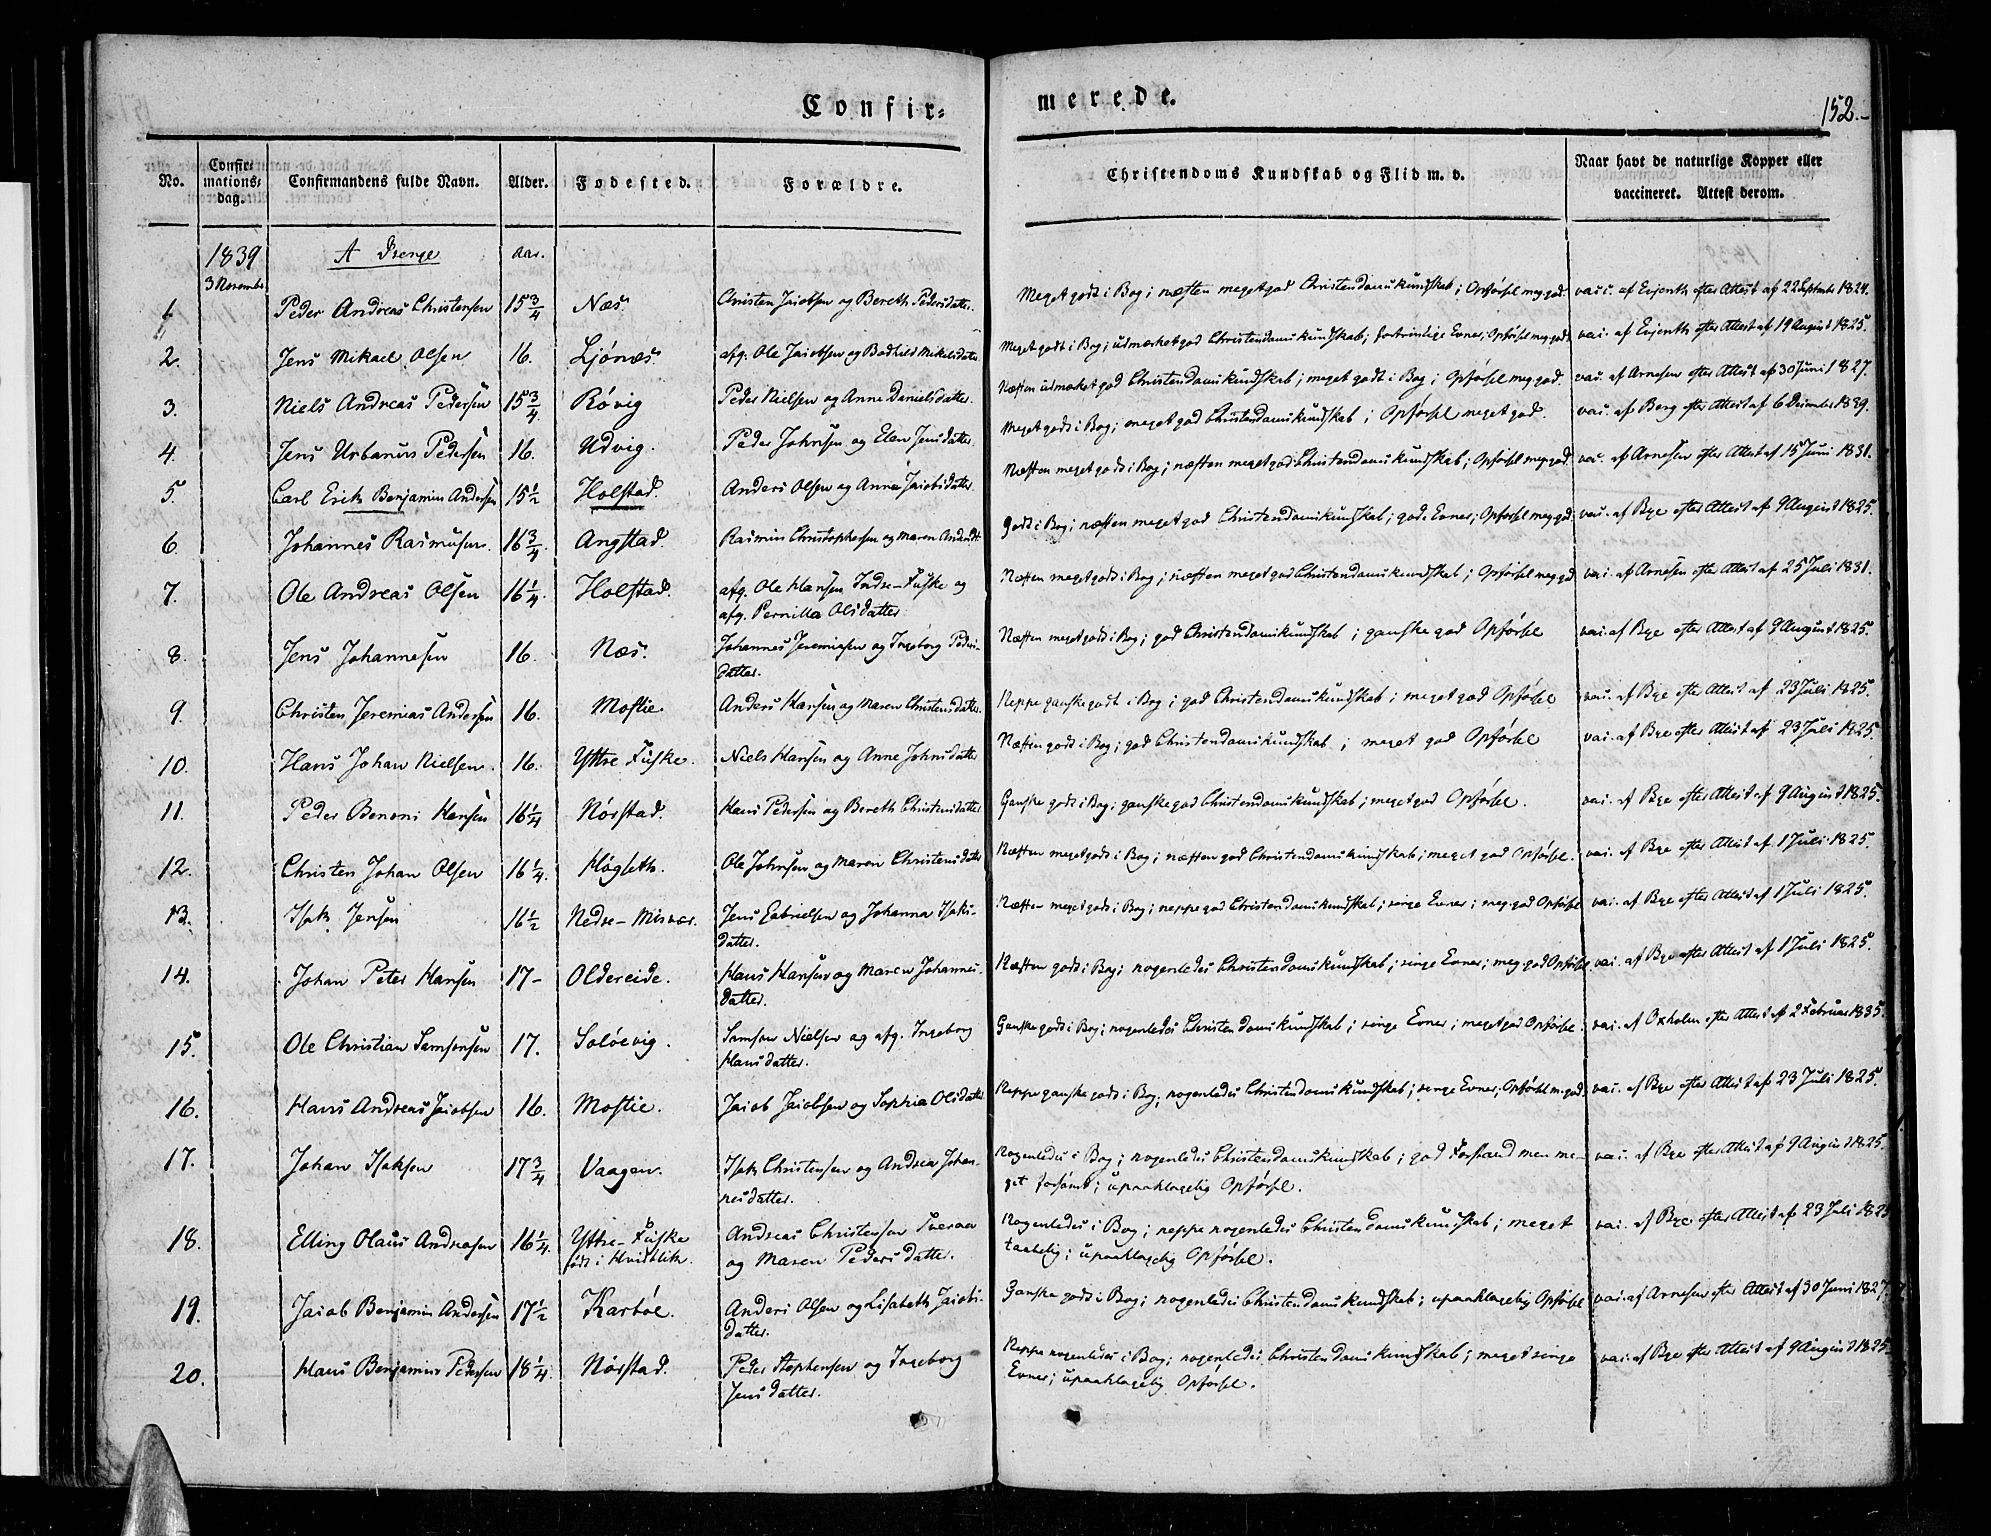 Confir=
merede.
152.-
No.
Confir=
mations-
dag.
Confirmandens fulde Navn.
Alder.
Fødested.
Forældre.
Christendoms Kundskab og Flid m. v.
Naar havt de naturlige Kopper eller
vaccineret. Attest derom.
1839
A Drenge
aar.
3 November
1. Peder Andreas Christensen 15 3/4 Næs. Christen Jacobsen og Bereth Pedersdatter. Meget godt i Bog; næsten meget god Christendomskundskab; Opførsel meg. god. vac. af Evjenth efter Attest af 22 Septmbr 1824.
2. Jens Mikael Olsen 16. Ljönæs. afg. Ole Jacobsen og Bodhild Mikelsdatter Meget godt i Bog; udmærket god Christendomskundskab; fortrinlige Evner; Opførsel meg. god. vac. af Evjenth efter Attest af 19 August 1825.
3. Niels Andreas Pedersen 15 3/4. Røvig Peder Nielsen og Anne Danielsdatter. Næsten udmærket god Christendomskundskab; meget godt i Bog; Opførsel meg. god. vac. af Arnesen efter Attest af 30 Juni 1827.
4. Jens Urbanus Pedersen 16. Udvig. Peder Johnsen og Elen Jensdatter. Meget godt i Bog; meget god Christendomskundskab; Opførsel meget god. vac. af Berg efter Attest af 6 December 1839.
5. Carl Erik Benjamin Andersen 15 1/2 Holstad. Anders Olsen og Anne Jacobsdatter. Næsten meget godt i Bog; næsten meget god Christendomskundskab; Opførsel meg. god. vac. af Arnesen efter Attest af 15 Juni 1831.
6. Johannes Rasmusen. 16 3/4. Angstad. Rasmus Christophersen og Maren Andersdt. Godt i Bog; næsten meget god Christendomskundskab; gode Evner; Opførsel meg. god. vac. af Bye efter Attest af 9 August 1825.
7. Ole Andreas Olsen 16 1/4. Holstad. afg. Ole Hansen Indre-Fuske og Næsten meget godt i Bog; næsten meget god Christendomskundskab; Opførsel meg. god. vac. af Arnesen efter Attest af 25 Juli 1831.
afg. Pernilla Olsdatter
8. Jens Johannesen 16. Næs. Johannes Jeremiasen og Ingeborg Peders- Næsten meget godt i Bog; god Christendomskundskab; ganske god Opførsel vac. af Bye efter Attest af 9 August 1825.
datter.
9. Christen Jeremias Andersen 16. Mostie. Anders Hansen og Maren Christensdatter. Neppe ganske godt i Bog; god Christendomskundskab; meget god Opførsel vac. af Bye efter Attest af 23 Juli 1825.
10. Hans Johan Nielsen. 16. Yttre Fuske. Niels Hansen og Anne Johnsdatter Næsten godt i Bog; god Christendomskundskab; meget god Opførsel vac. af Bye efter Attest af 23 Juli 1825.
11. Peder Benoni Hansen 16 1/4 Nørstad. Hans Pedersen og Bereth Christensdatter Ganske godt i Bog; ganske god Christendomskundskab; meget god Opførsel. vac. af Bye efter Attest af 9 August 1825.
12. Christen Johan Olsen 16 1/4. Høgleth. Ole Johnsen og Maren Christensdatter Næsten meget godt i Bog; næsten god Christendomskundskab; meget god Opførsel. vac. af Bye efter Attest af 1 Juli 1825.
13. Isak Jensen 16 1/2 Nedre-Misvær. Jens Gabrielsen og Johanna Isaks- Næsten meget godt i Bog; neppe god Christendomskundskab; ringe Evner; meg. god Opførsel vac. af Bye efter Attest af 1 Juli 1825.
datter.
14. Johan Peter Hansen 17- Oldereide. Hans Hansen og Maren Johannes- Næsten godt i Bog; nogenledes Christendomskundskab; ringe Evner; meg. god Opførsel vac. af Bye efter Attest af 1 Juli 1825.
datter.
15. Ole Christian Samsonsen 17. Soløevig. Samson Nielsen og afg. Ingeborg Ganske godt i Bog; nogenledes Christendomskundskab; ringe Evner; meget god Opførsel. vac. af Oxholm efter Attest af 2 Februar 1835.
Hansdatter.
16. Hans Andreas Jacobsen 16. Mostie. Jacob Jacobsen og Sophia Olsdatter Neppe ganske godt i Bog; nogenledes Christendomskundskab; ringe Evner; Opførsel m. god. vac. af Bye efter Attest af 23 Juli 1825.
17. Johan Isaksen 17 3/4 Vaagen. Isak Christensen og Andrea Johan- Nogenledes i Bog; nogenledes Christendomskundskab; god Forstand men me- vac. af Bye efter Attest af 9 August 1825.
nesdatter. get forsømt; upaaklagelig Opførsel.
18. Elling Olaus Andreasen 16 1/4. Yttre-Fuske Andreas Christensen Tveraa Nogenledes i Bog; neppe nogenledes Christendomskundskab; meget vac. af Bye efter Attest af 23 Juli 1825
født i Hvidblik. og Maren Pedersdatter. taabelig; upaaklagelig Opførsel.
19. Jacob Benjamin Andersen 17 1/2 Karbøl. Anders Olsen og Lisabeth Jacobs- Ganske godt i Bog; nogenledes Christendomskundskab; upaaklagelig Opførsel vac. af Arnesen efter Attest af 30 Juni 1827.
datter.
20. Hans Benjamin Pedersen 18 1/4. Nørstad. Peder Stephensen og Ingeborg Neppe nogenledes i Bog; nogenledes Christendomskundskab; meget ringe vac. af Bye efter Attest af 9 August 1825
Jensdatter. Evner; upaaklagelig Opførsel.